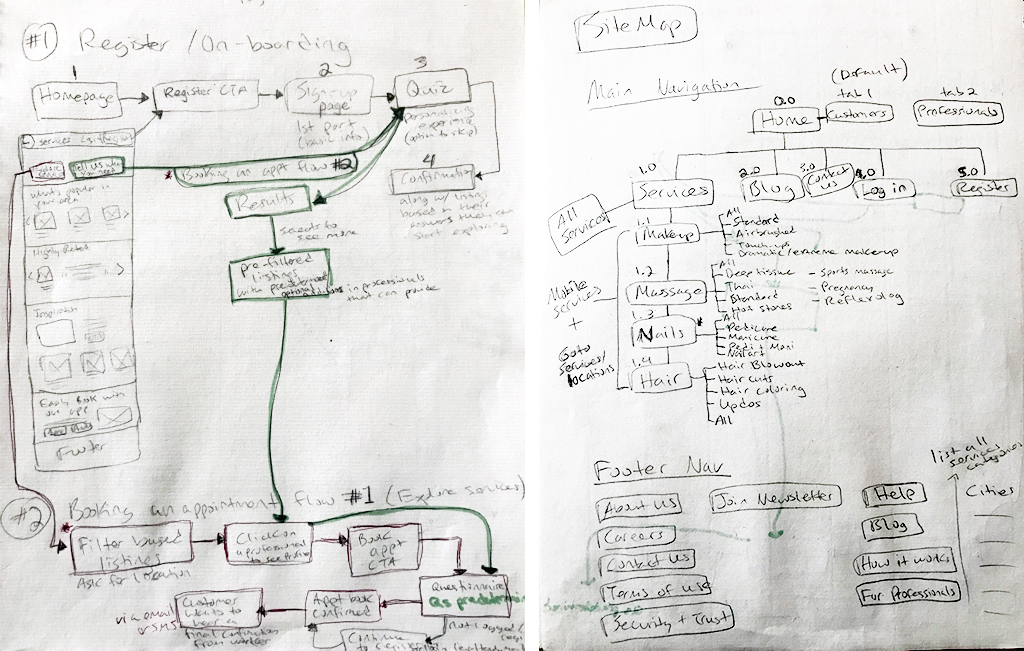 #1 Register / On-boarding
1
Homepage
Register CTA
2
Sign-up
page
1st part
(basic info)
3
Quiz
personalizing
experience
(option to skip)
4
Confirmation
along w/ listings
based in their
answers they can
start exploring
services
Tell us what
you need
* Booking an appt flow #2
Results
selects to
see more
pre-filtered
listings
with predetermined
options in professionals
that can provide
what's popular in
your area
Highly Rated
Inspiration
Easily Book with
our app
Footer
#2
* Booking an appointment flow #1 (Explore services)
Filter based
listings
Ask for location
Click on
a professional
to see
Book
appt
CTA
Questionnaire
Qs predetermin
not logged
Appt book
confirmed
Customer
wants to
hear a
final confirmation
from worker
via email
or SMS
Continue
to register
Site Map
Main Navigation
(Default)
0.0
Home
tab 1
Customers
tab 2
Professionals
All
Services
1.0
Services
2.0
Blog
3.0
Contact
us
4.0
Log in
5.0
Register
1.1
Makeup
All
Standard
Airbrushed
Touch-ups
Dramatic/extreme makeup
1.2
Massage
All
Deep tissue
Thai
Standard
Hot stones
- Sports massage
- Pregnancy
- Reflexolog
1.3
Nails
*
All
Pedicure
Manicure
Pedi + Mani
Nail art
1.4
Hair
Hair Blowout
Hair cuts
Hair coloring
Updos
All
Mobile
Services
+
Go to
Services/
locations
Footer Nav
About us
Careers
Contact us
Terms of use
Security + Trust
Join Newsletter
Help
Blog
How it works
For Professionals
list all
services
categories
Cities